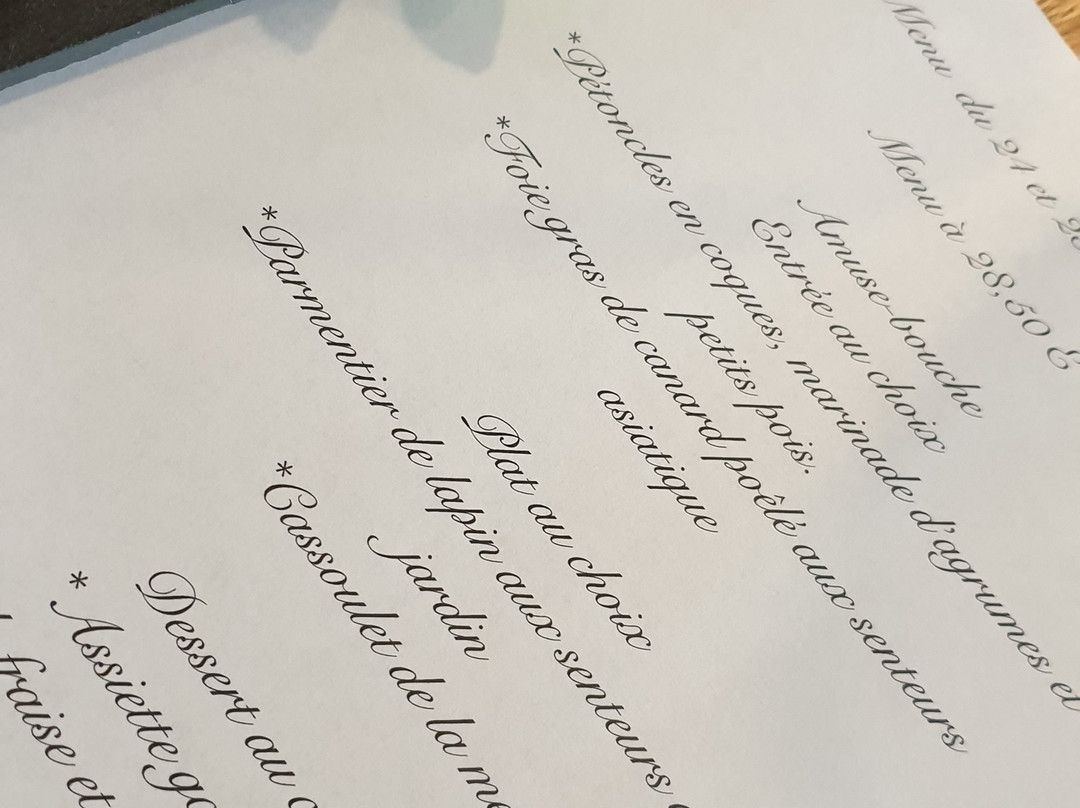 Menu du 24 et
Menu à 28,50 €
Amuse-bouche
Entrée au choix
*Pétoncles en coques, marinade d'agrumes et
petits pois.
*Foie gras de canard poêlé aux senteurs
asiatique
Plat au choix
*Parmentier de lapin aux senteurs
jardin
*Cassoulet de la
Dessert au
* Assiette
fraise et